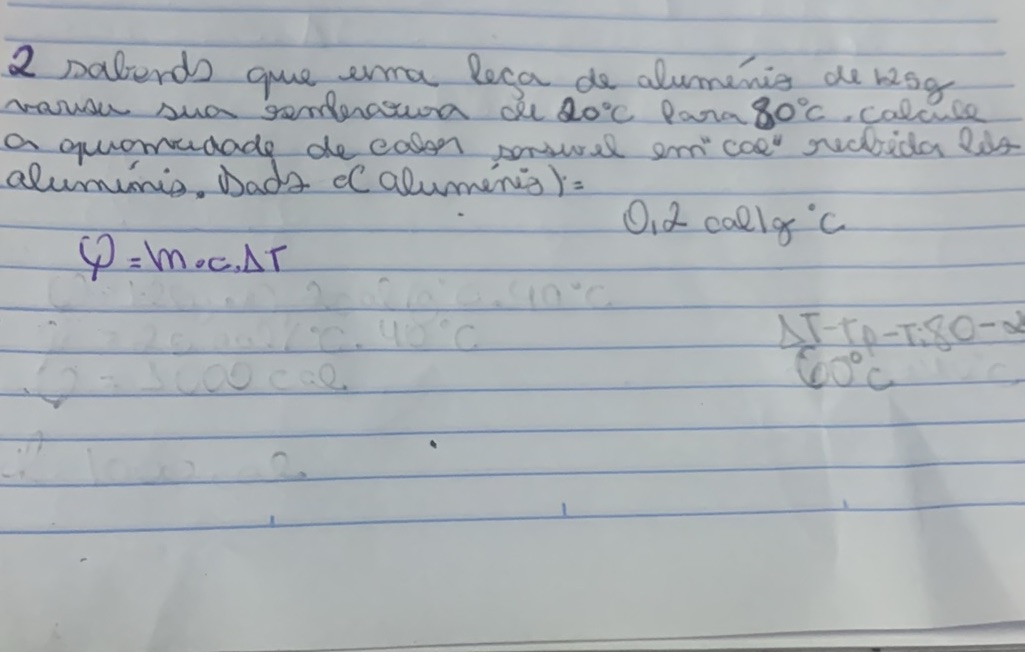 2 sabendo que uma peça de alumínio de 125g
variou sua temperatura de 20°C para 80°C. calcule
a quantidade de calor sensível em "cal" recebida pelo
alumínio. Dado c(alumínio)=
0,2 cal/g °C
Q = m.c.ΔT
40°C
40°C
ΔT=Tf-Ti=80-2
60°C
Q = 3000 cal